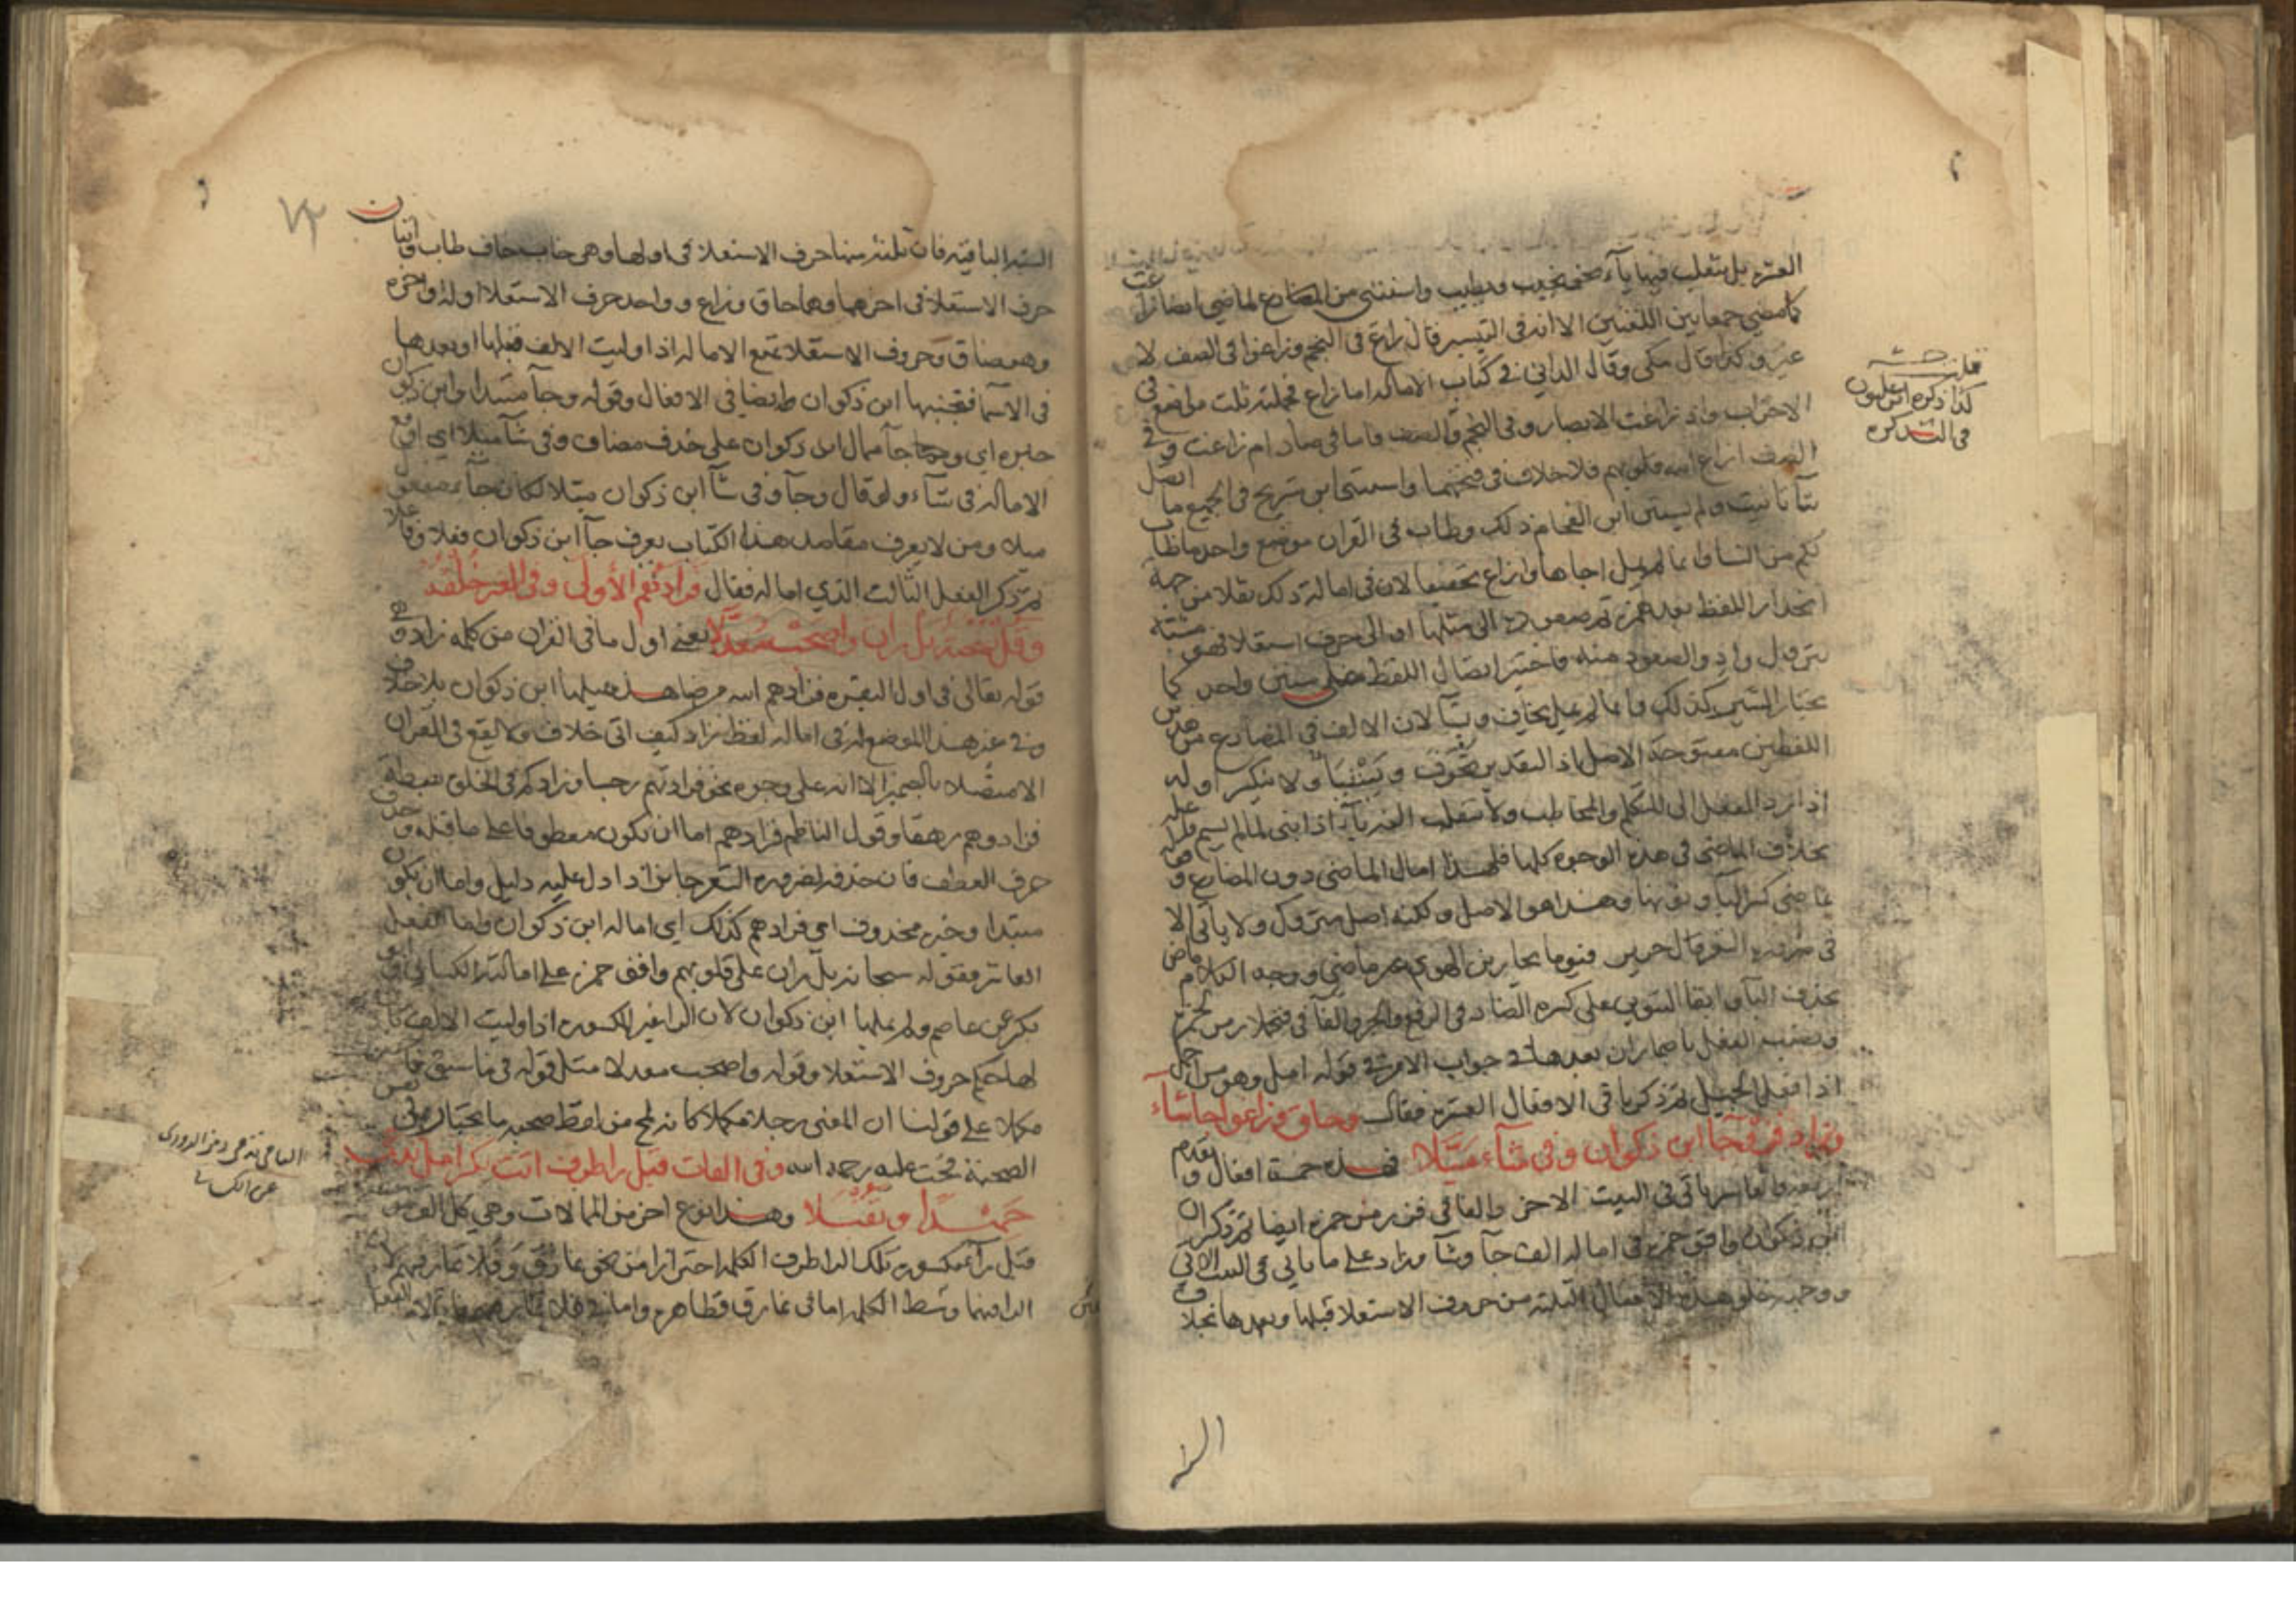 العشرة بل ينقلب فيها ياء نحو يجيب ويطيب واستثنى من المضارع لماضي ايضا زاغت
كما مضى جمعا بين اللغتين الا انه في التيسير قال زاغ في النجم وزاغوا في الصف لا
غير وكذا قال مكي وقال الداني في كتاب الامالة اما زاغ فجملته ثلث مواضع في
الاحزاب واذ زاغت الابصار وفي النجم والصف فاما في صاد ام زاغت وفي
الصف ازاغ الله قلوبهم فلا خلاف في فتحهما واستثنى ابن شريح في الجميع ما اتصل
بتا تانيث ولم يستثن ابن الفحام ذلك وطاب في القران موضع واحد ما طاب
لكم من النسا وانما لم يمل اجاها وازاغ تخفيفا لان في امالة ذلك نقلا من جهة
انحدار اللفظ بعد همزة ثم صعوده الى مثلها او الى حرف استعلا فهو مشبه
بترول واد والصعود منه فاختير ايصال اللفظ على سنن واحد كما
يختار التسمير كذلك وانما لم يمل يخاف ويشا لان الالف في المضارع من هذين
اللفظين مفتوحة الاصل اذ التقدير يخوف ويشيأ ولا ينكسر اوله
اذا رد الفعل الى المتكلم والمخاطب ولا تنقلب الفه ياء اذا بنى لما لم يسم فاعله
بخلاف الماضي في هذه الوجوه كلها فلهذا امال الماضي دون المضارع
بماضي كسر اليا وتنوينها وهذا هو الاصل ولكنه اصل متروك ولا ياتي الا
في ضرورة الشعر قال جرير فيوما يجازين الهوى غير ماضي ووجه الكلام ماض
بحذف اليا وابقا التنوين على كسرة الضاد في الرفع والجر والفا في فتجملا رمز لحمزة
ونصب الفعل باضمار ان بعدها في جواب الامر في قوله امل وهو من اجمل
اذا فعل الجميل ثم ذكر باقي الافعال العشرة فقال وحاق وزاغوا جا شاء
وزاد فز وجا ابن ذكوان وفي شاء ميلا فهذه خمسة افعال وتقدم
اربعة والعاشر ياتي في البيت الاخر والفا في فز رمز حمزة ايضا ثم ذكر ان
ابن ذكوان وافق حمزة في امالة الف جا وشا وزاد على ما ياتي في البيت الاتي
ووجه خلو هذه الافعال الثلثة من حروف الاستعلا قبلها وبعدها بخلاف
قلت
كذا ذكره ابن غلبون
في التذكرة
الستة
الستة الباقية فان ثلثة منها حرف الاستعلا في اولها وهي خاب خاف طاب واثنان
حرف الاستعلا في اخرهما وهما حاق وزاغ وواحد حرف الاستعلا اوله واخره
وهو ضاق وحروف الاستعلا تمنع الامالة اذا وليت الالف قبلها او بعدها
في الاسما فتجنبها ابن ذكوان طردا في الافعال وقوله وجا مبتدا وابن ذكوان
خبره اي وجا ممال ابن ذكوان على حذف مضاف وفي شا ميلا اي اوقع
الامالة في شاء ولو قال وجا وفي شا ابن ذكوان ميلا لكان جا مفعول
ميلا ومن لا يعرف مقاصد هذا الكتاب يعرف جا ابن ذكوان فعلا وفاعلا
ثم ذكر الفعل الثالث الذي اماله فقال فزادهم الأولى وفي الغير خلفه
وقل صحبة بل ران واصحب معدلا يعني اول ما في القران من كلمة زاد وهي
قوله تعالى في اول البقرة فزادهم الله مرضا هذه يميلها ابن ذكوان بلا خلاف
وفي غير هذا الموضع له في امالة لفظ زاد كيف اتى خلاف ولا يقع في القران
الا متصلا بالضمير الا انه على وجوه نحو فزادتهم رجسا وزادكم في الخلق بسطة
فزادوهم رهقا وقول الناظم فزادهم اما ان يكون معطوفا على ما قبله وحذف
حرف العطف فان حذفه لضرورة الشعر جايز اذا دل عليه دليل واما ان يكون
مبتدا وخبره محذوف اي فزادهم كذلك اي اماله ابن ذكوان واما الفعل
العاشر فقوله سبحانه بل ران على قلوبهم وافق حمزة على امالته الكسائي وابو
بكر عن عاصم ولم يملها ابن ذكوان لان الرا غير المكسورة اذا وليت الالف كان
لها حكم حروف الاستعلا وقوله واصحب معدلا مثل قوله فيما سبق
مكملا على قولنا ان المعنى رجلا مكملا كانه لمح من لفظ صحبة ما يختار من
الصحبة فحث عليه رحمه الله وفي الفات قبل را طرف اتت بكسر امل تدعى
حميدا وتقبلا وهذا نوع اخر من الممالات وهي كل الف
قبل راء مكسورة تلك الرا طرف الكلمة احترازا من نحو نمارق وفلا تمار فيهم لان
الرا فيهما وسط الكلمة اما في نمارق فظاهر واما في فلا تمار
التا في تدعى رمز الدوري
عن الكسائي